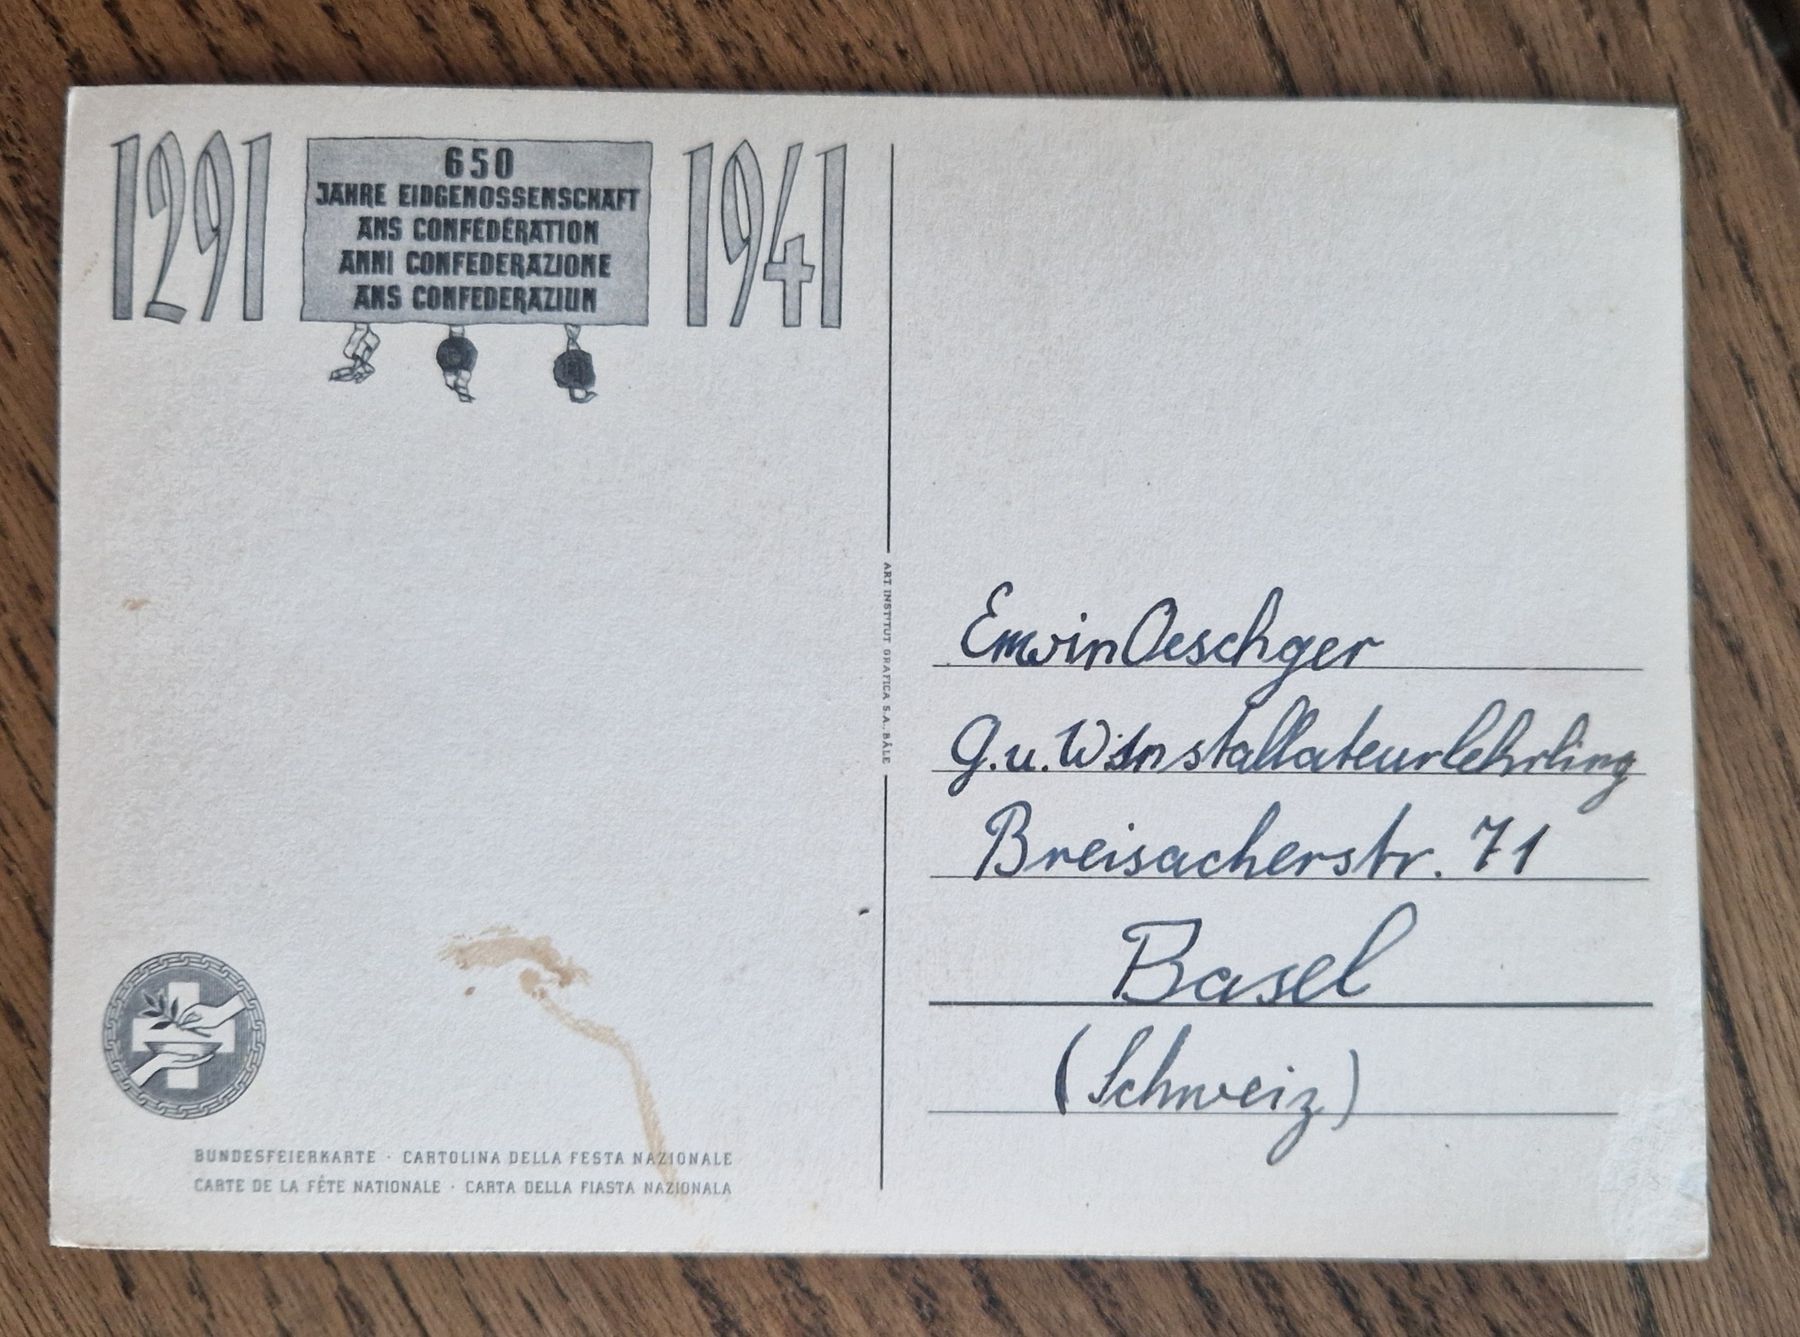 1291
650
JAHRE EIDGENOSSENSCHAFT
ANS CONFÉDÉRATION
ANNI CONFEDERAZIONE
ANS CONFEDERAZIUN
1941
ART INSTITUT ORAFICA S.A. BÂLE
BUNDESFEIERKARTE · CARTOLINA DELLA FESTA NAZIONALE
CARTE DE LA FÊTE NATIONALE · CARTA DELLA FIASTA NAZIONALA
Erwin Oeschger
G. u. W. Installateurlehrling
Breisacherstr. 71
Basel
(Schweiz)